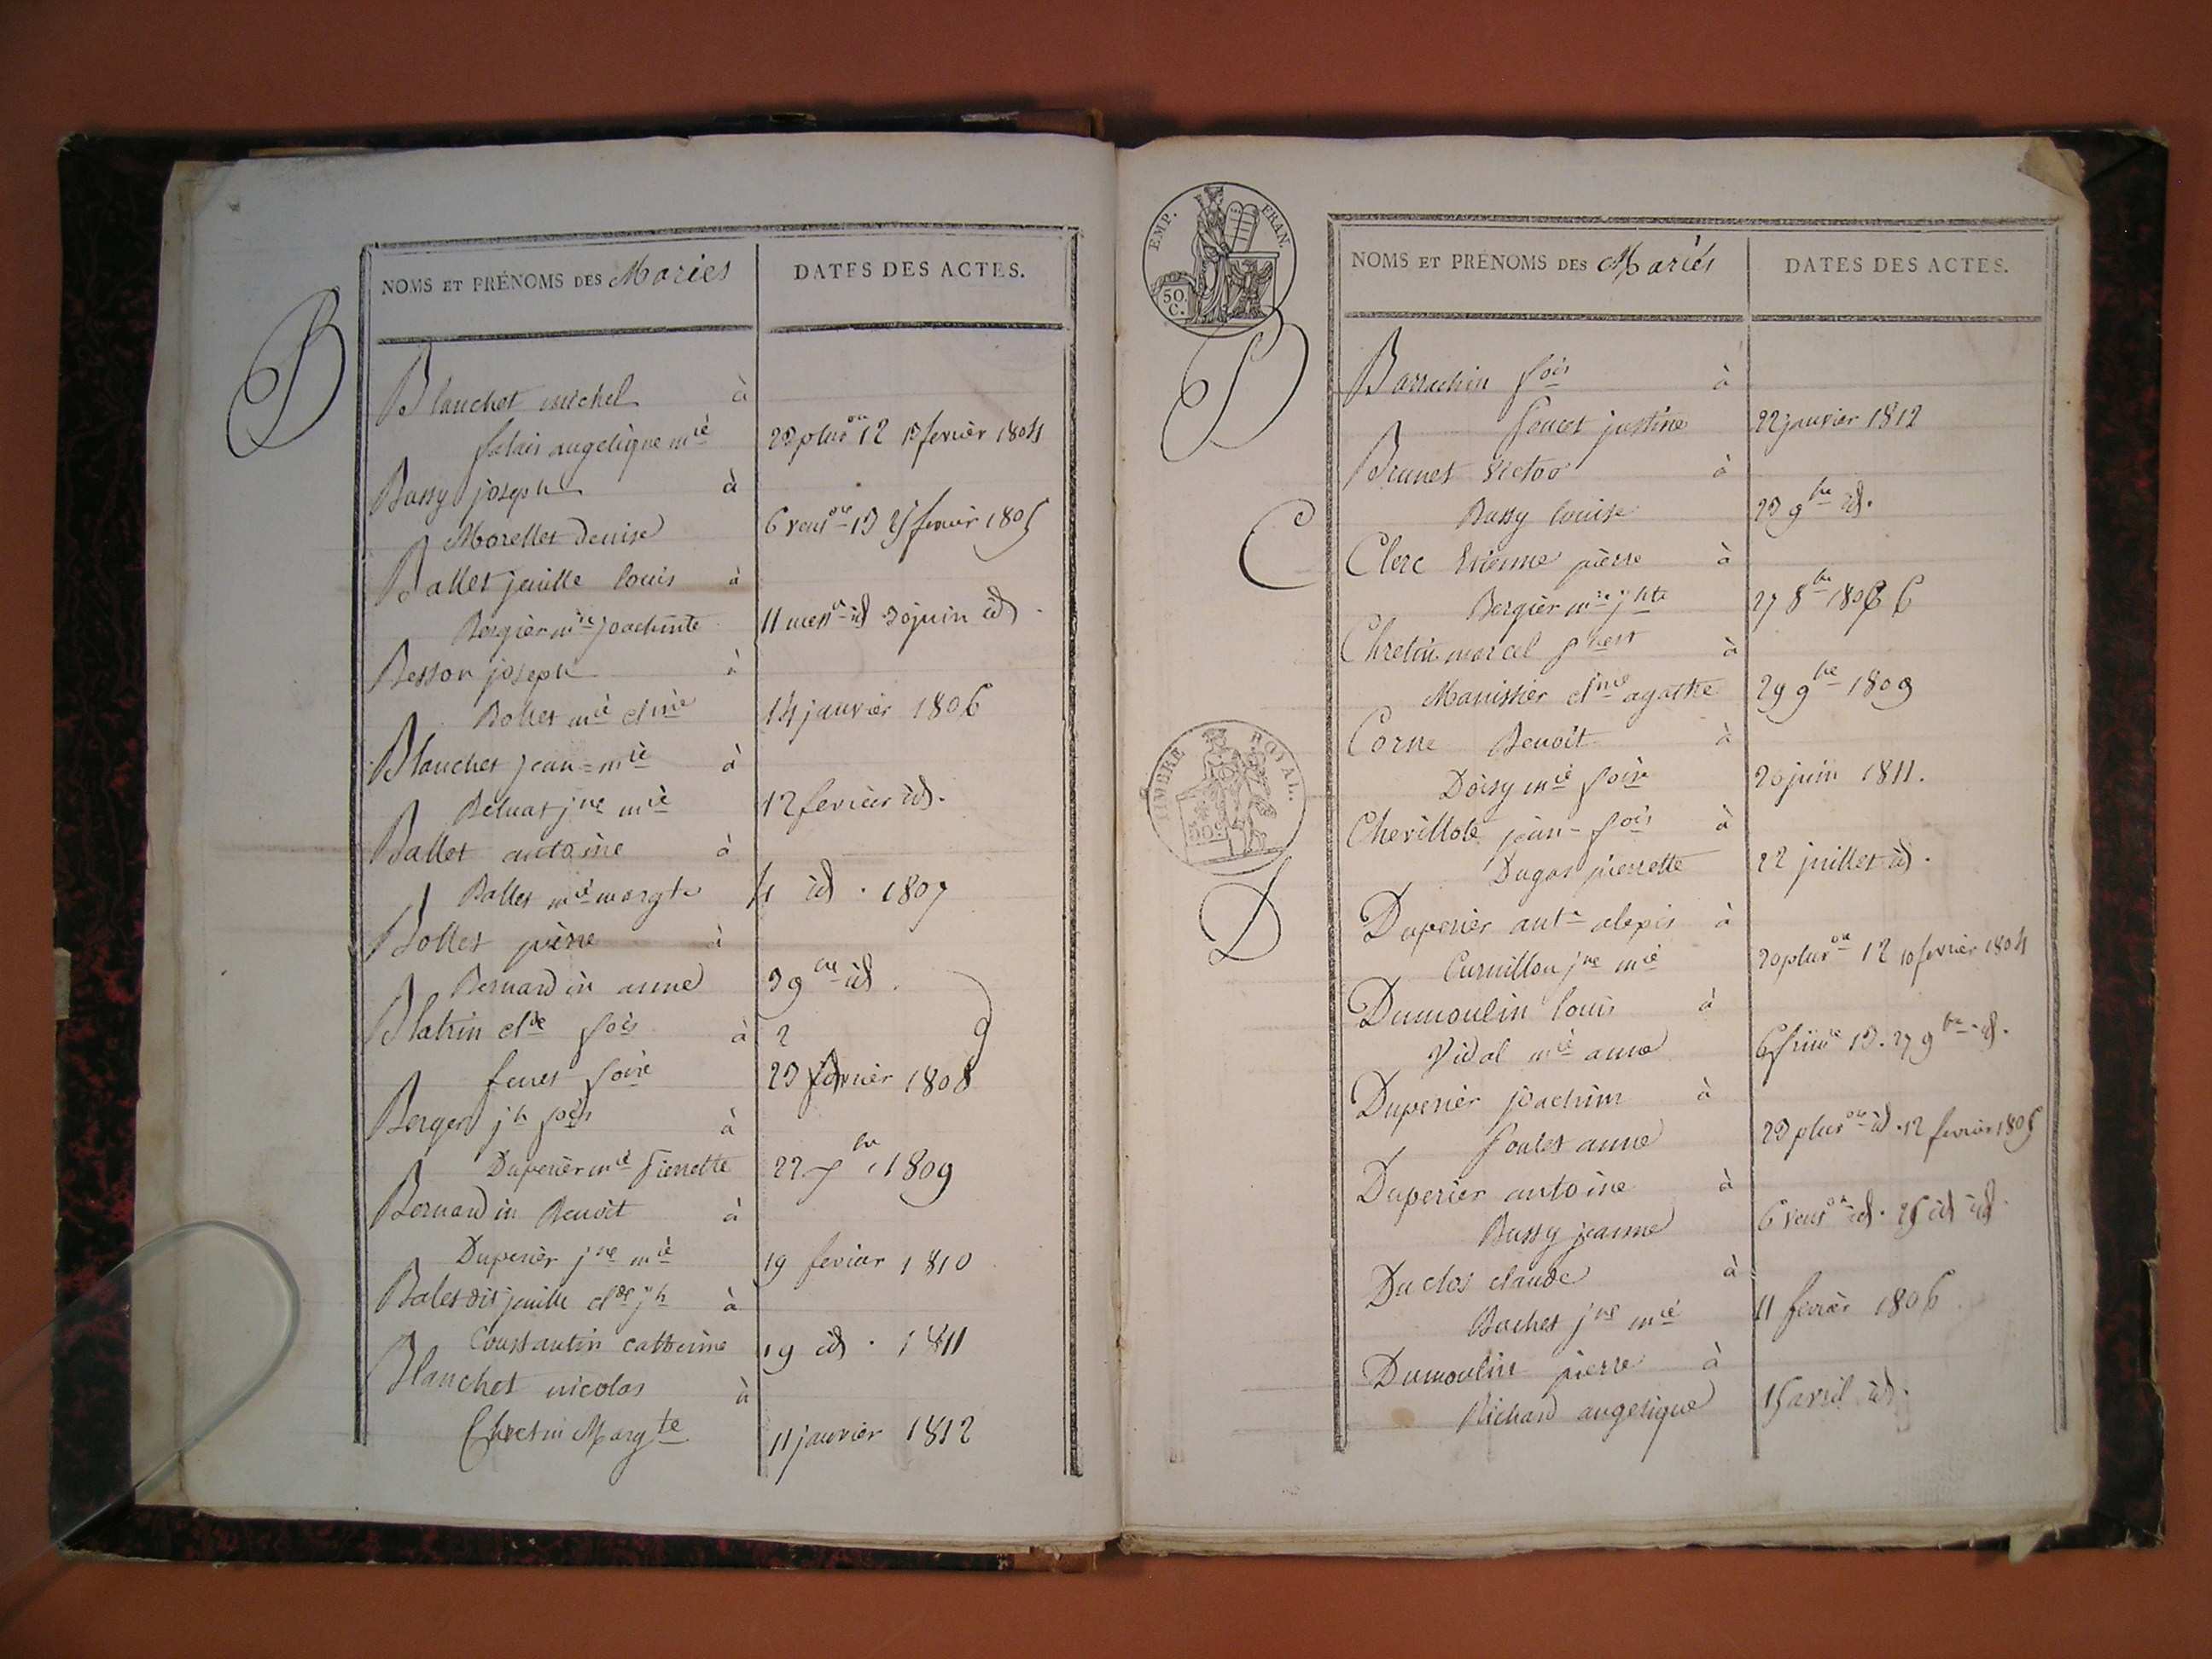 NOMS ET PRÉNOMS DES Maries
DATES DES ACTES.
B
Blanchet michel à
falais angelique mie 23 pluv ose 12 13 fevrier 1804
Bussy joseph à
Morellet Denise 6 vent ose 13 25 fevrier 1805
Ballet jeuille louis à
Bergier mie joachinte 11 mess r id 30 juin id
Besson joseph à
Bollet mie clme 14 janvier 1806
Blanchet jean=mie à
jne mie 12 fevrier id.
Ballet antoine à
Ballet mie margte 4 id. 1807
Bollet pierre à
Bernardin anne 3 9bre id.
Blatrin clde fois à 2
fois e 23 fevrier 1808
Berger jh fois à
Duperier mie Pierrette 22 7bre 1809
Bernardin Benoit à
Duperier jne mie 19 fevrier 1810
Balesdit jeuille clde jh à
Constantin catherine 19 id. 1811
Blanchet nicolas à
Chretin Margte 11 janvier 1812
EMP. FRAN.
50. C.
NOMS ET PRÉNOMS DES Mariés
DATES DES ACTES.
B
Barrachin fois à
justine 22 janvier 1812
Brunet Victor à
Bussy louise 23 9bre id.
C
Clerc Etienne pierre à
Bergier mie jhte 27 8bre 1806 6
Chretin marcel à
Manissier clme agathe 29 9bre 1809
Corne Benoit à
Doisy mie foise 20 juin 1811.
TIMBRE ROYAL.
50c
Chevillote jean-fois à
Dugas pierrette 22 juillet id.
D
Duperier ant e alexis à
Curvillon jne mie 20 pluv ose 12 10 fevrier 1804
Dumoulin louis à
Vidal mie anne 6 frim re 13. 27 9bre id.
Duperier joachim à
anne 23 pluv ose id. 12 fevrier 1805
Duperier antoine à
Bussy jeanne 6 vent ose id. 25 id id.
Duclos claude à
Bachet jne mie 11 fevrier 1806
Dumoulin pierre à
Richard angelique 15 avril id.